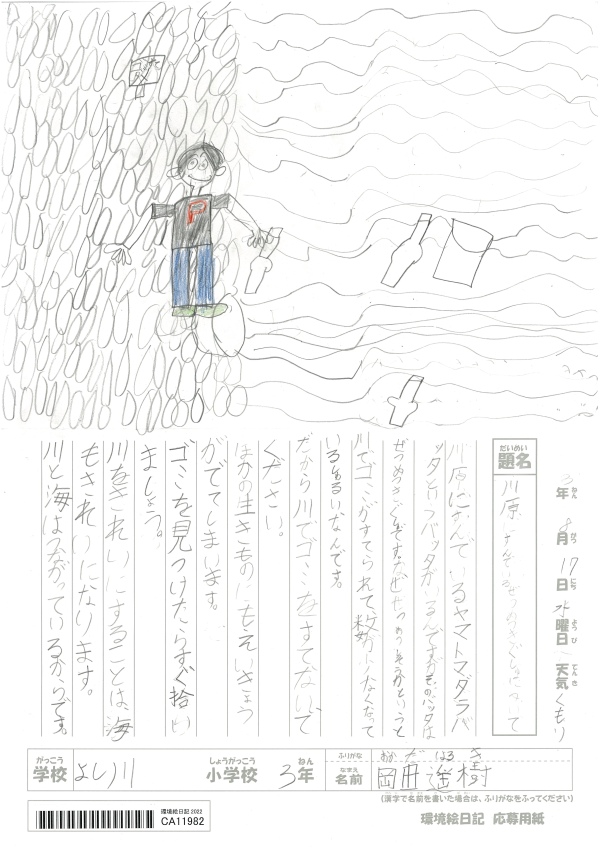 3年 8月 17日 水曜日 天気 くもり
だいめい
題名
川原にすんでいるぜつめつきぐしゅについて
川原にすんでいるヤマトマダラバ
ッタというバッタがいるんですがそのバッタは
ぜつめつきぐしゅです。なぜぜつめつしそうかというと
川でゴミがすてられて数が少なくなって
いるしゅるいなんです。
だから川でゴミをすてないで
ください。
ほかの生きものにもえいきょう
がでてしまいます。
ゴミを見つけたらすぐ拾い
ましょう。
川をきれいにすることは、海
もきれいになります。
川と海はつながっているからです。
がっこう しょうがっこう ねん ふりがな おかだ はるき
学校 よし川 小学校 3年 なまえ 名前 岡田遥樹
(漢字で名前を書いた場合は、ふりがなをふってください)
環境絵日記 2022
CA11982
環境絵日記 応募用紙